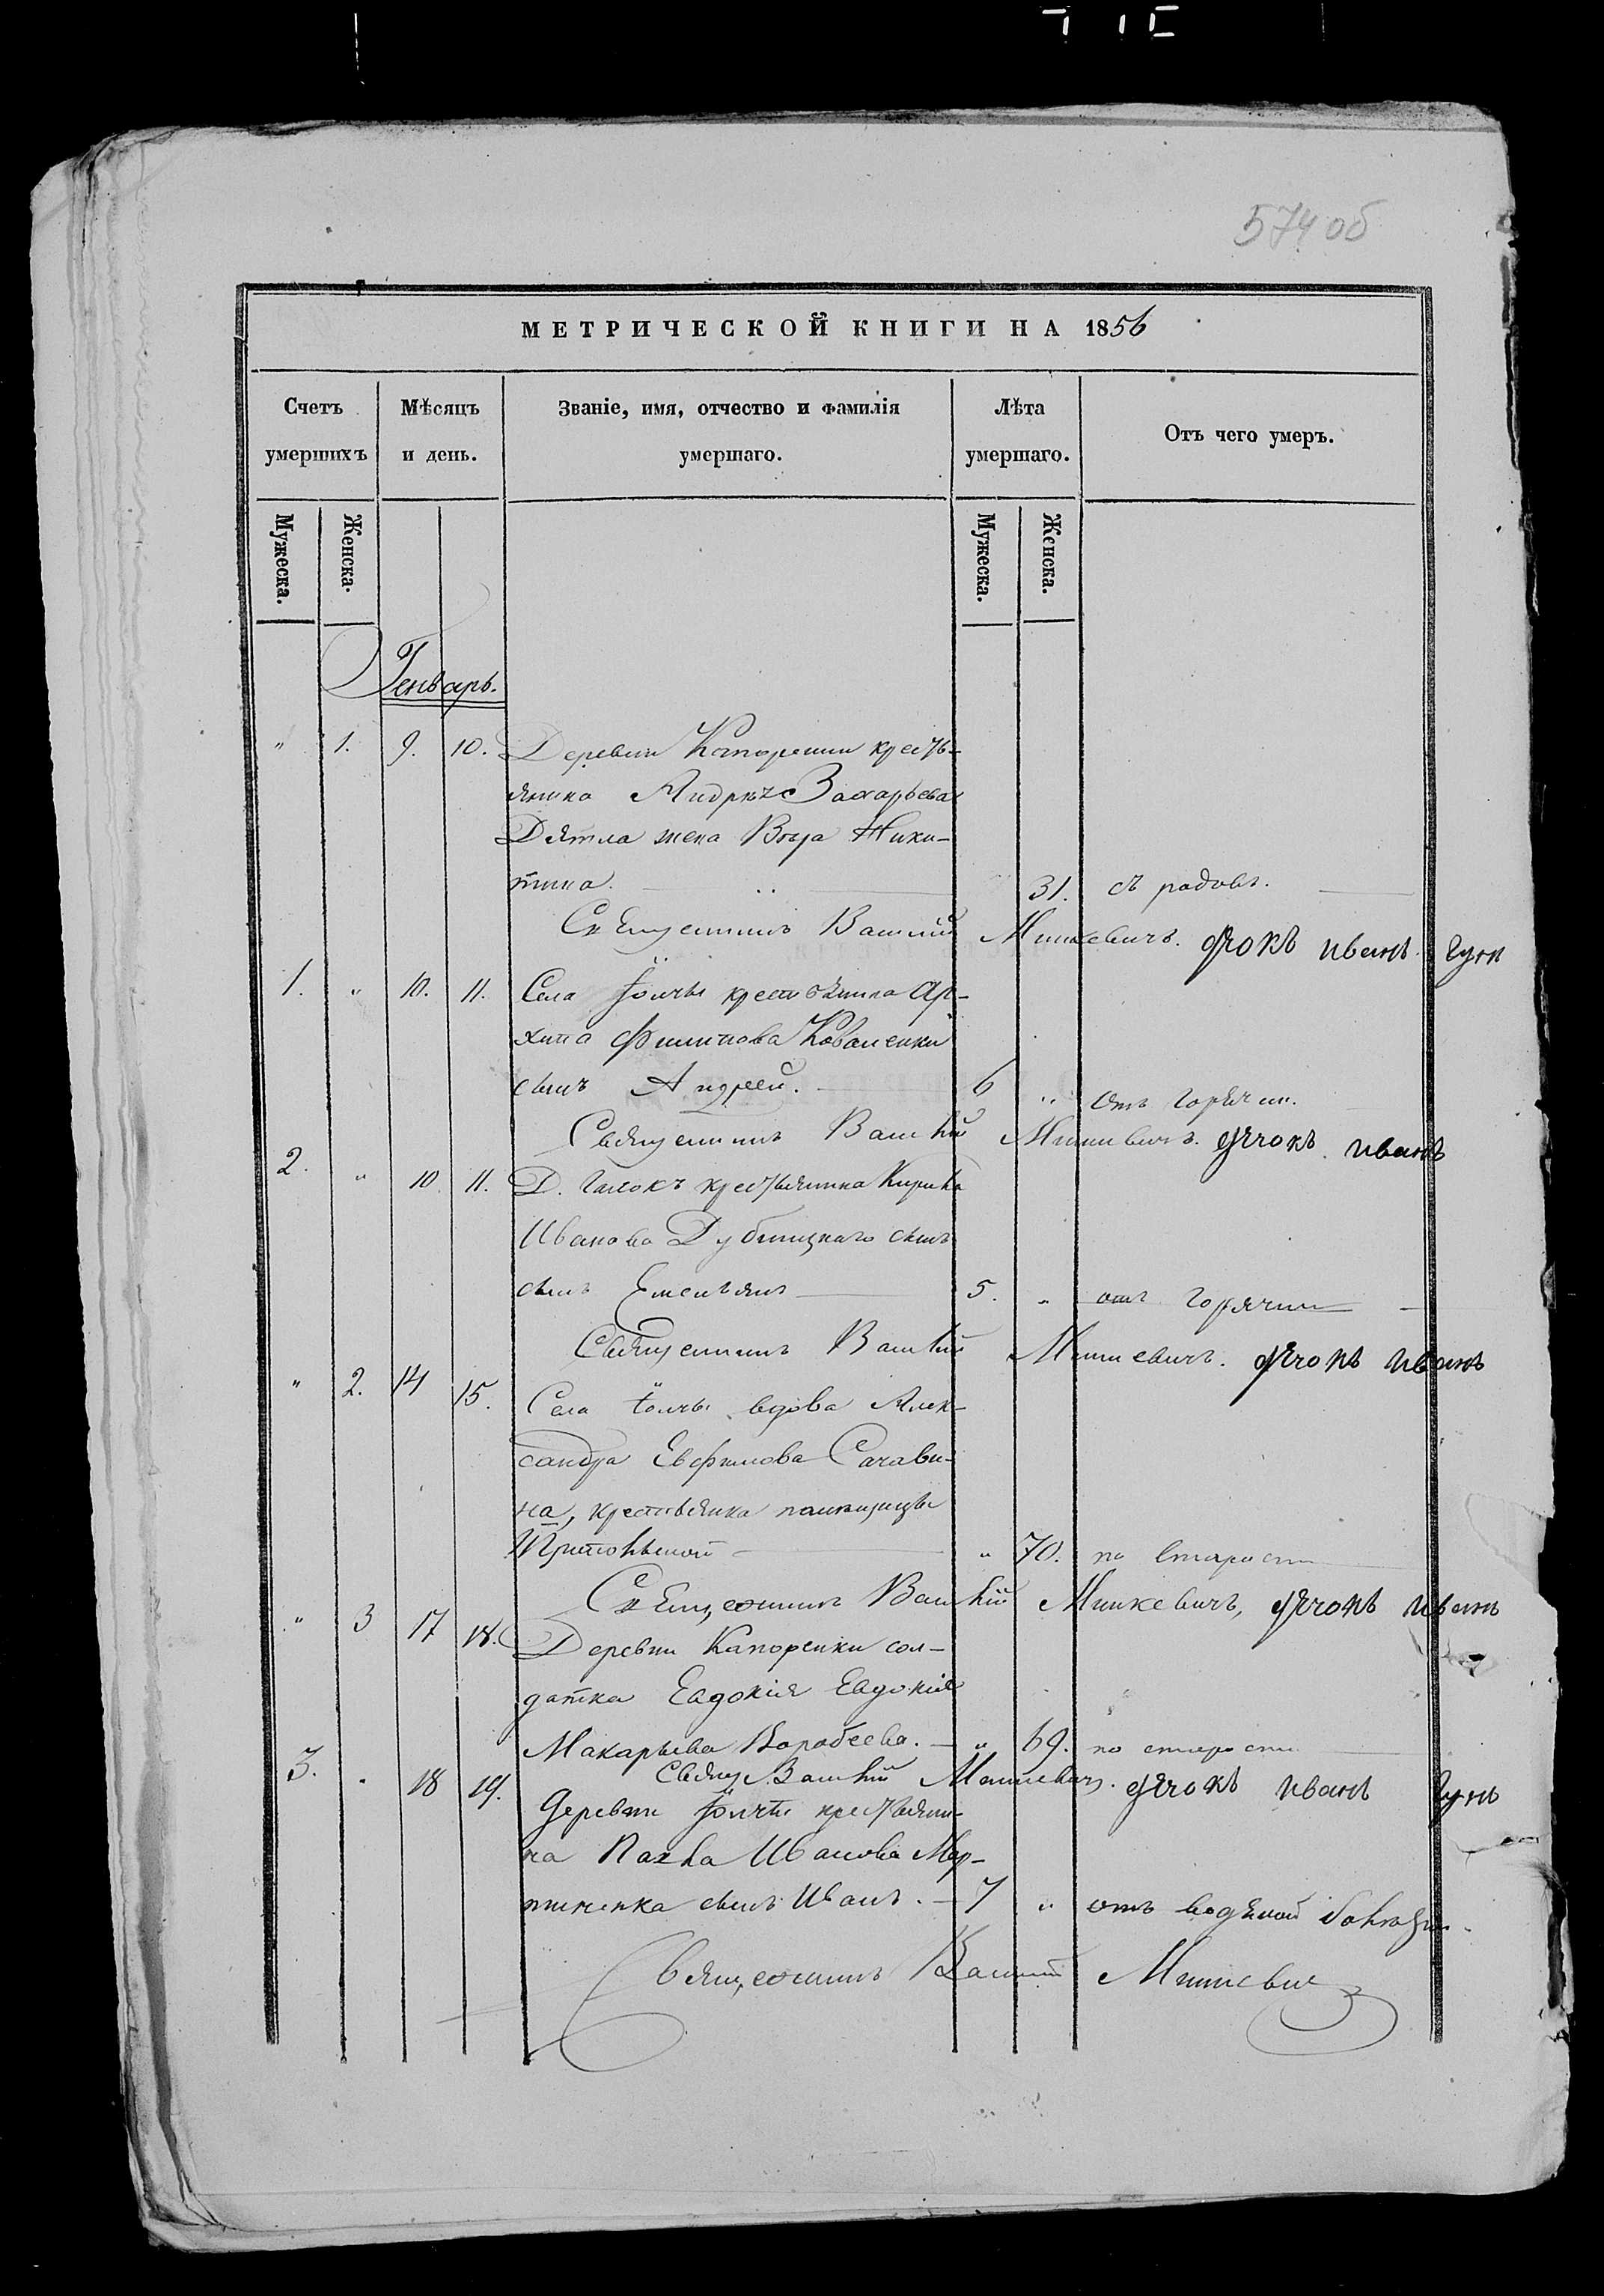 574 об
МЕТРИЧЕСКОЙ КНИГИ НА 1856
Счетъ умершихъ
Мѣсяцъ и день.
Званіе, имя, отчество и фамилія умершаго.
Лѣта умершаго.
Отъ чего умеръ.
Мужеска. Женска. Мужеска. Женска.
Генварь.
" 1. 9. 10. Деревни Капоренки кресть-
янина Андрея Захарьева
Дятла жена Вѣра Ники-
тина. 31. съ родовъ.
Священникъ Василій Минкевичъ. дячокъ иванъ
1. " 10. 11. Села крестьянина Ар-
хипа Филипова Коваленки
сынъ Андрей. 6 " отъ горячки.
Священникъ Василій Минкевичъ. дячокъ иванъ
2. " 10 11. Д. Галокъ крестьянина Кирила
Иванова Дубницкаго сынъ
сынъ Емельянъ 5. " отъ горячки
Священникъ Василій Минкевичъ. дячокъ иванъ
" 2. 14 15. Села вдова Алек-
сандра Евфимова Сачави-
на, крестьянка помѣщицы
" 70. по старости
Священникъ Василій Минкевичъ, дячокъ иванъ
" 3 17 18. Деревни Капоренки сол-
датка Евдокія Евдокія
Макарьева Воробеева. " 69. по старости
Священ. Василій Минкевичъ. дячокъ иванъ
3. " 18 19. Деревни крестьяни-
на Ивановa Мар-
тиненка сынъ Иванъ. 7 " отъ водяной болѣзни.
Священникъ Василій Минкевич